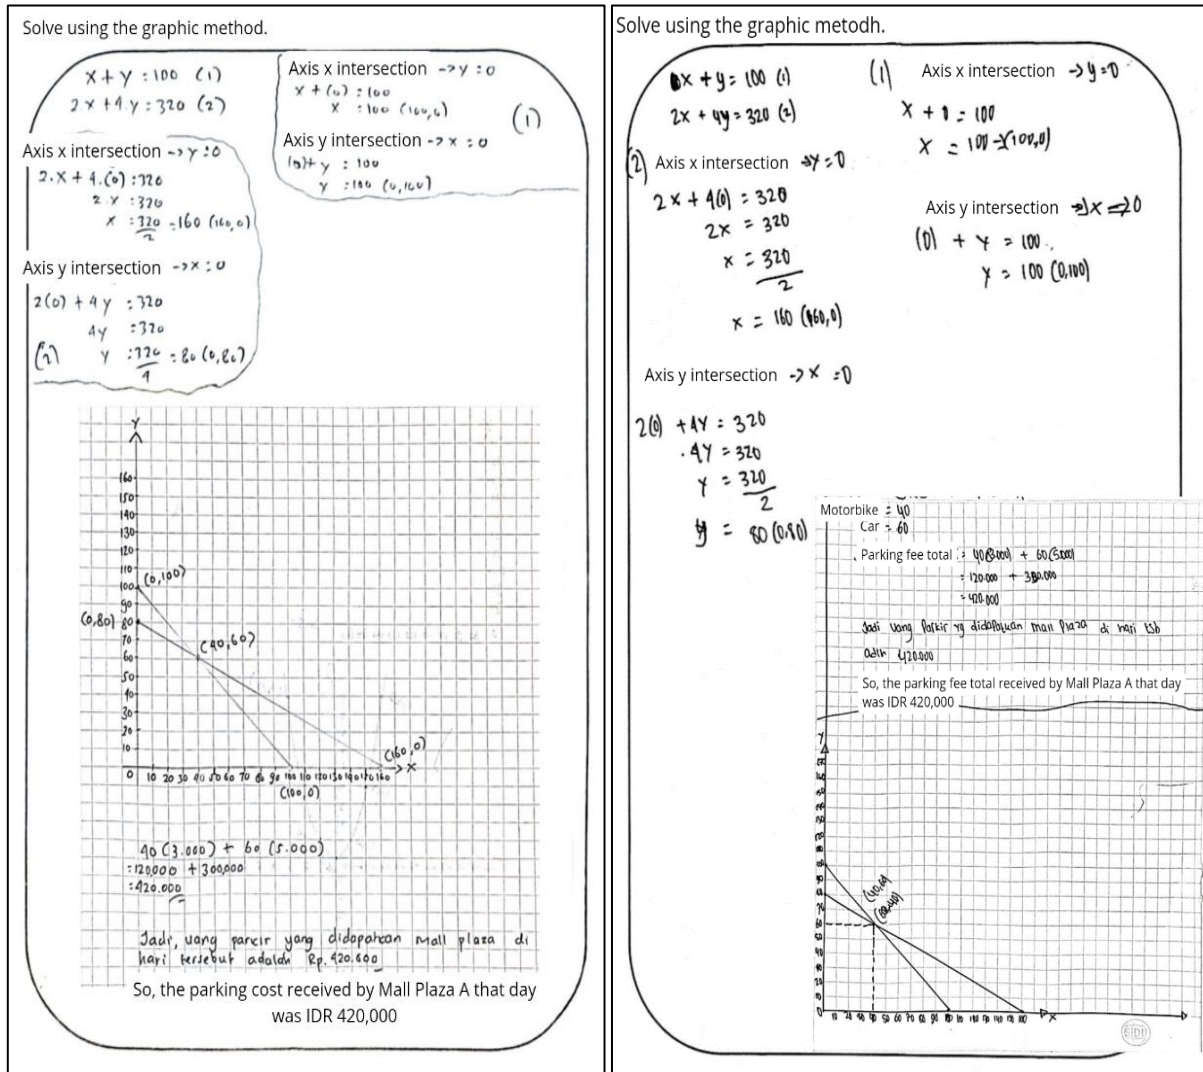 Solve using the graphic method.
x + y = 100 (1)
2x + 4.y = 320 (2)
Axis x intersection -> y = 0
x + (0) = 100
x = 100 (100,0)
Axis y intersection -> x = 0
(0) + y = 100
y = 100 (0,100)
(1)
Axis x intersection -> y = 0
2.x + 4.(0) = 320
2.x = 320
x = 320/2 = 160 (160,0)
Axis y intersection -> x = 0
2(0) + 4y = 320
4y = 320
(2) y = 320/4 = 80 (0,80)
Y
160
150
140
130
120
110
100 (0,100)
90
(0,80) 80
70
60 (40,60)
50
40
30
20
10
(160,0)
0 10 20 30 40 50 60 70 80 90 100 110 120 130 140 150 160 X
(100,0)
40 (3.000) + 60 (5.000)
= 120,000 + 300,000
= 420.000
Jadi, uang parkir yang didapatkan mall plaza di
hari tersebut adalah Rp. 420.000
So, the parking cost received by Mall Plaza A that day
was IDR 420,000
Solve using the graphic metodh.
x + y = 100 (1)
2x + 4y = 320 (2)
(1) Axis x intersection -> y = 0
x + 0 = 100
x = 100 -> (100,0)
Axis y intersection -> x = 0
(0) + y = 100
y = 100 (0,100)
(2) Axis x intersection -> y = 0
2x + 4(0) = 320
2x = 320
x = 320/2
x = 160 (160,0)
Axis y intersection -> x = 0
2(0) + 4y = 320
4y = 320
y = 320/2
y = 80 (0,80)
Motorbike = 40
Car = 60
Parking fee total = 40(3.000) + 60(5.000)
= 120.000 + 300.000
= 420.000
Jadi uang parkir yg didapatkan mall plaza di hari tsb
adlh 420.000
So, the parking fee total received by Mall Plaza A that day
was IDR 420,000
Y
(40,60)
X
SIDU